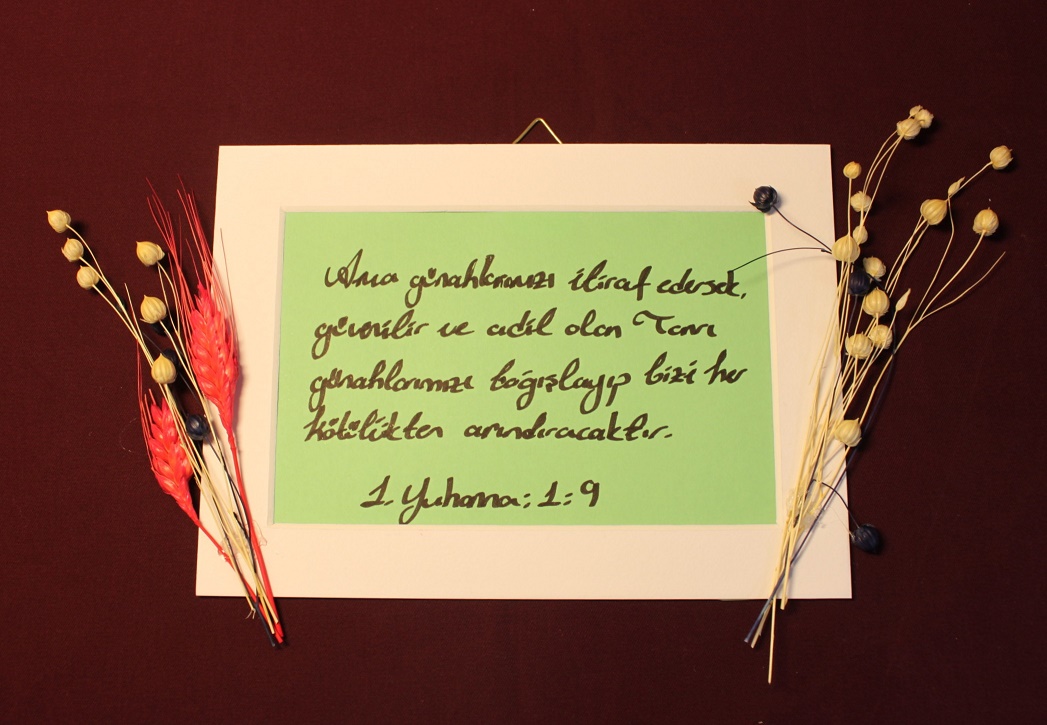 Ama günahlarımızı itiraf edersek,
güvenilir ve adil olan Tanrı
günahlarımızı bağışlayıp bizi her
kötülükten arındıracaktır.
1. Yuhanna: 1: 9